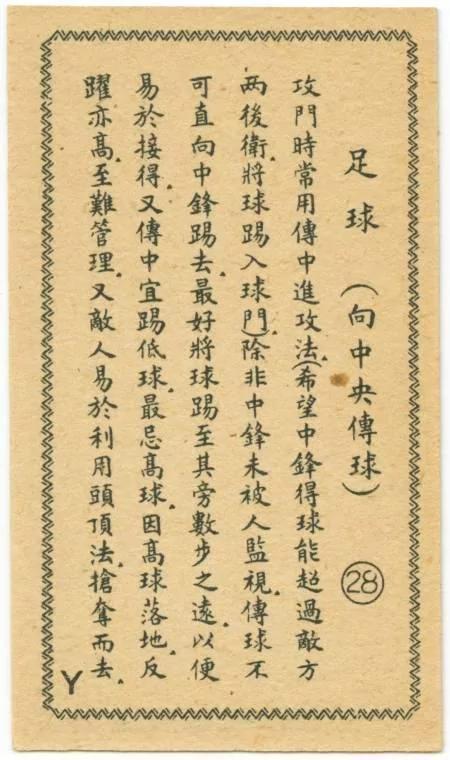 足球（向中央傳球）㉘
攻門時常用傳中進攻法。（希望中鋒得球能超過敵方
两後衛。將球踢入球門）除非中鋒未被人監視。傳球不
可直向中鋒踢去。最好將球踢至其旁數步之遠。以便
易於接得。又傳中宜踢低球。最忌高球。因高球落地。反
躍亦高。至難管理。又敵人易於利用頭頂法。搶奪而去。
Y